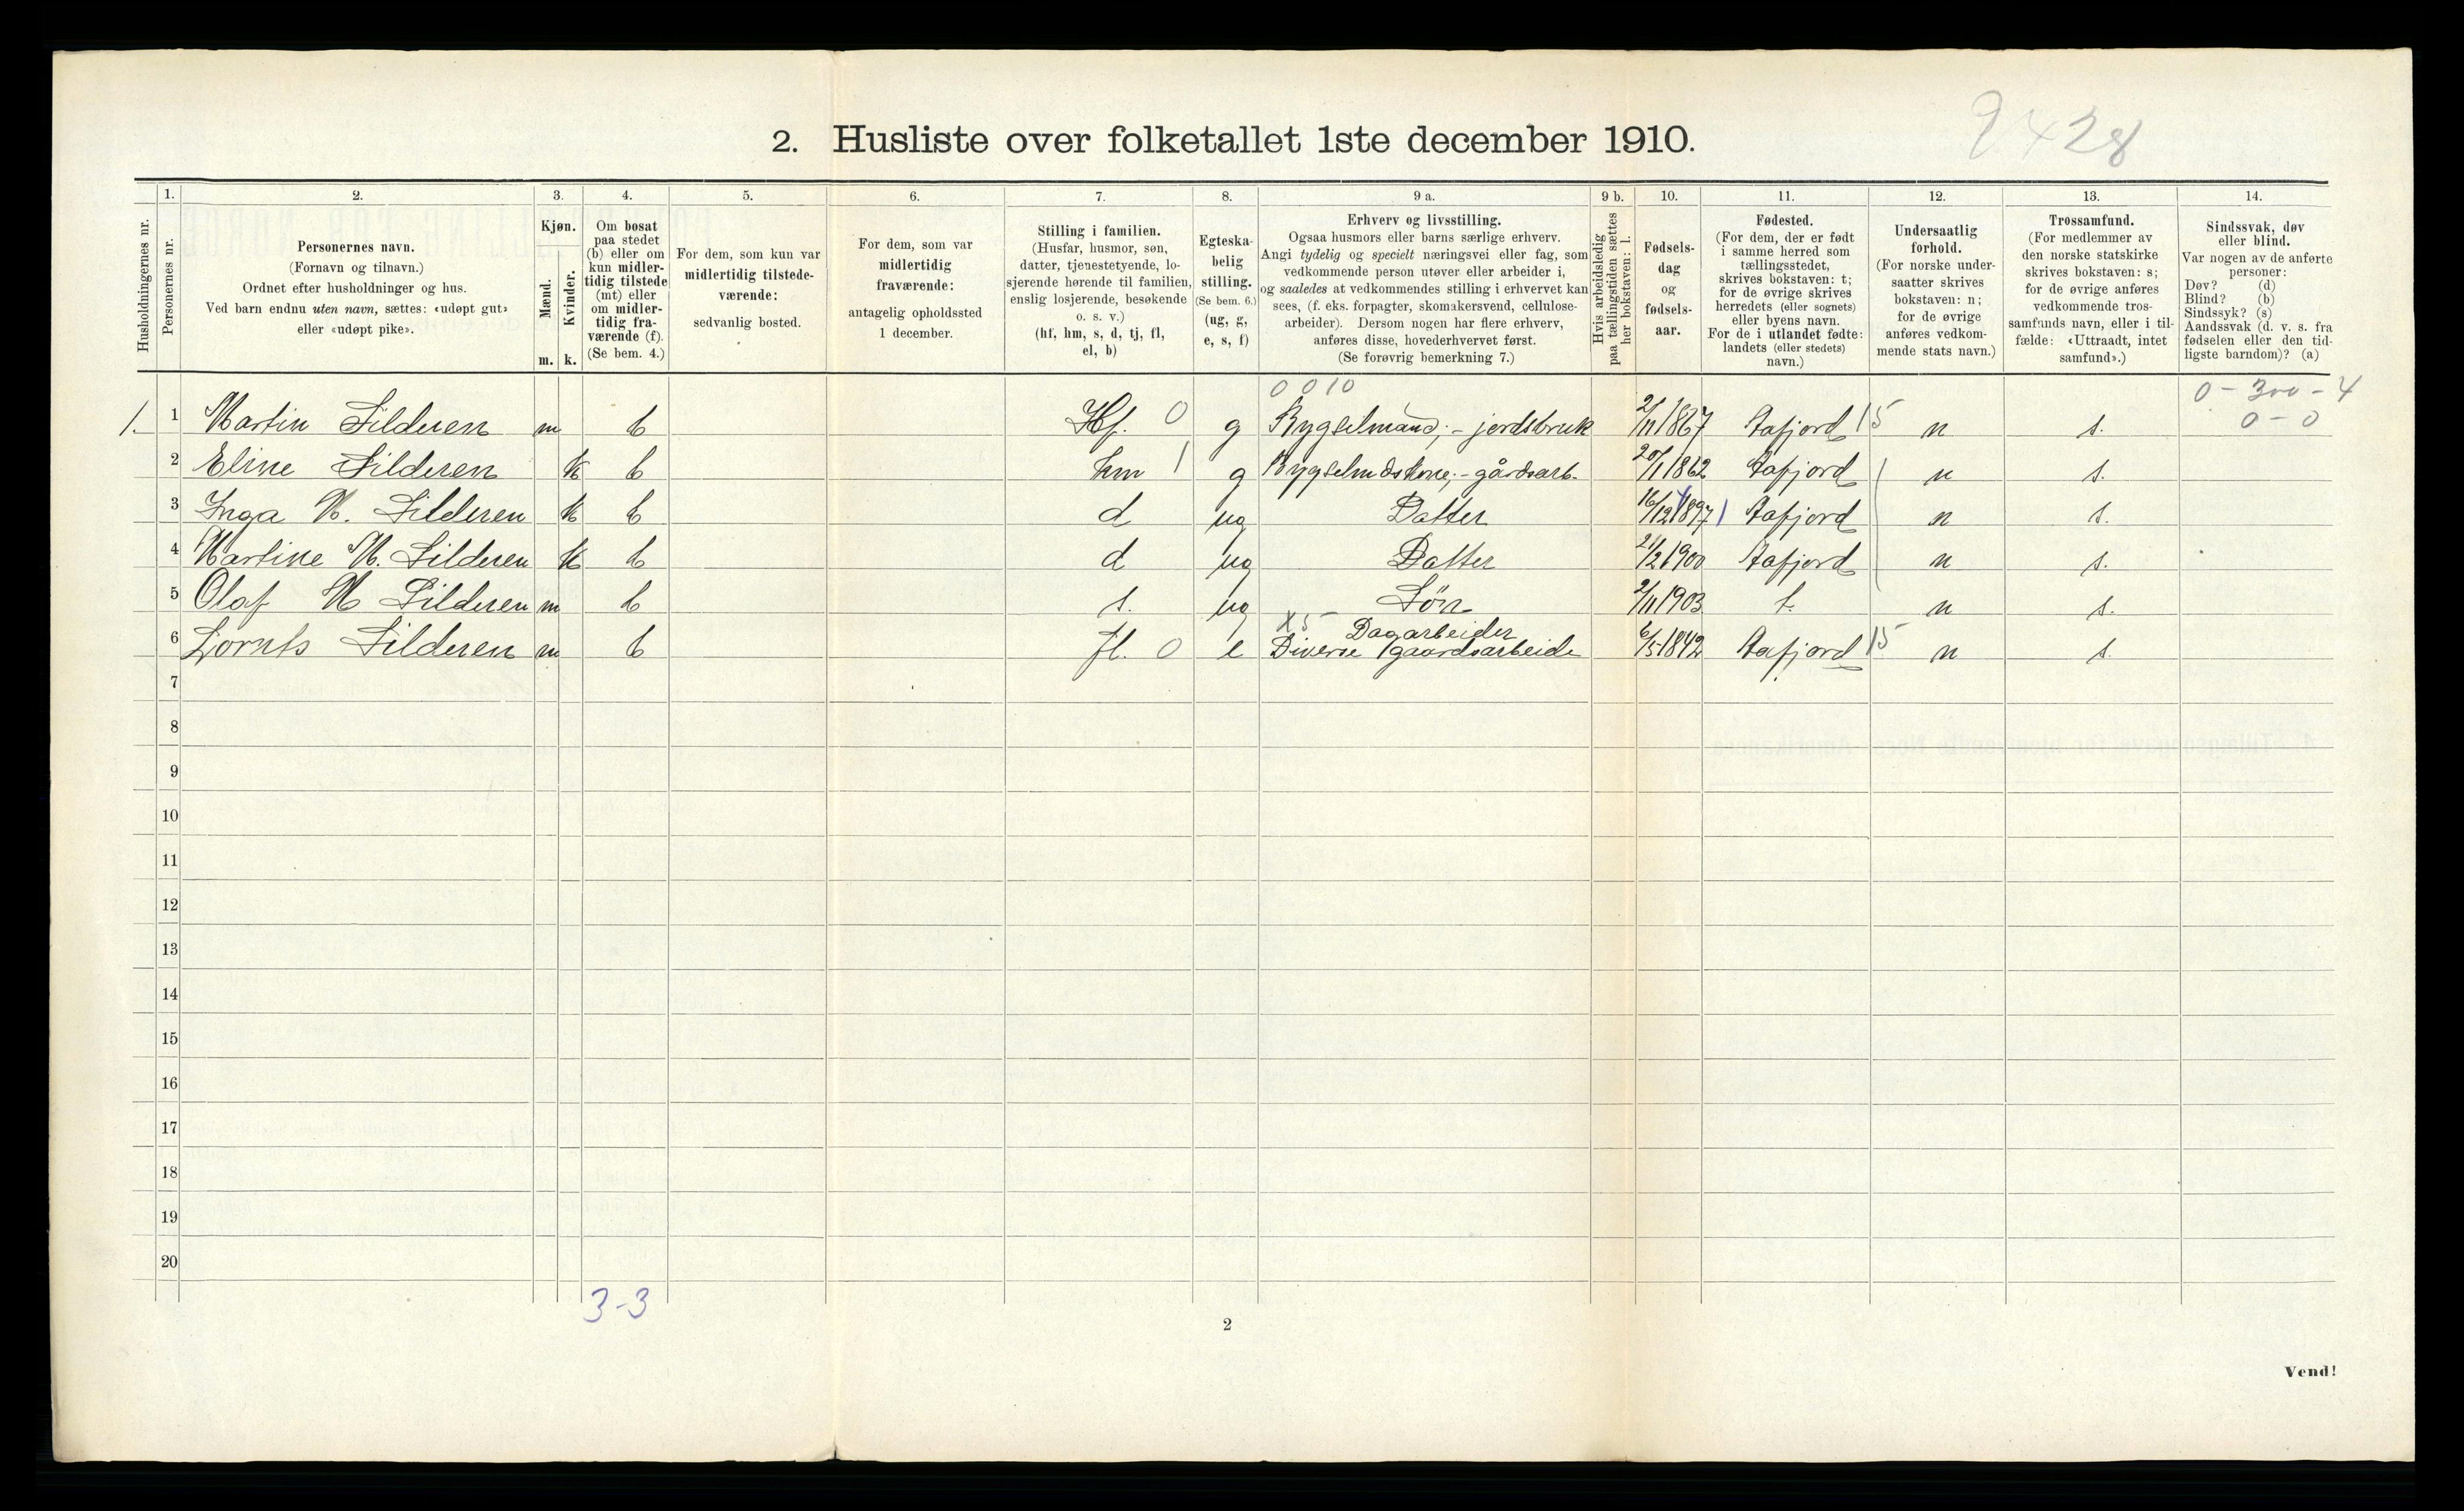 2. Husliste over folketallet 1ste december 1910.
9428
Husholdningernes nr.
1.
Personernes nr.
2.
Personernes navn.
(Fornavn og tilnavn.)
Ordnet efter husholdninger og hus.
Ved barn endnu uten navn, sættes: «udøpt gut»
eller «udøpt pike».
3.
Kjøn.
Mænd.
Kvinder.
m. k.
4.
Om bosat
paa stedet
(b) eller om
kun midler-
tidig tilstede
(mt) eller
om midler-
tidig fra-
værende (f).
(Se bem. 4.)
5.
For dem, som kun var
midlertidig tilstede-
værende:
sedvanlig bosted.
6.
For dem, som var
midlertidig
fraværende:
antagelig opholdssted
1 december.
7.
Stilling i familien.
(Husfar, husmor, søn,
datter, tjenestetyende, lo-
sjerende hørende til familien,
enslig losjerende, besøkende
o. s. v.)
(hf, hm, s, d, tj, fl,
el, b)
8.
Egteska-
belig
stilling.
(Se bem. 6.)
(ug, g,
e, s, f)
9 a.
Erhverv og livsstilling.
Ogsaa husmors eller barns særlige erhverv.
Angi tydelig og specielt næringsvei eller fag, som
vedkommende person utøver eller arbeider i,
og saaledes at vedkommendes stilling i erhvervet kan
sees, (f. eks. forpagter, skomakersvend, cellulose-
arbeider). Dersom nogen har flere erhverv,
anføres disse, hovederhvervet først.
(Se forøvrig bemerkning 7.)
9 b.
Hvis arbeidsledig
paa tællingstiden sættes
her bokstaven: l.
10.
Fødsels-
dag
og
fødsels-
aar.
11.
Fødested.
(For dem, der er født
i samme herred som
tællingsstedet,
skrives bokstaven: t;
for de øvrige skrives
herredets (eller sognets)
eller byens navn.
For de i utlandet fødte:
landets (eller stedets)
navn.)
12.
Undersaatlig
forhold.
(For norske under-
saatter skrives
bokstaven: n;
for de øvrige
anføres vedkom-
mende stats navn.)
13.
Trossamfund.
(For medlemmer av
den norske statskirke
skrives bokstaven: s;
for de øvrige anføres
vedkommende tros-
samfunds navn, eller i til-
fælde: «Uttraadt, intet
samfund».)
14.
Sindssvak, døv
eller blind.
Var nogen av de anførte
personer:
Døv? (d)
Blind? (b)
Sindssyk? (s)
Aandssvak (d. v. s. fra
fødselen eller den tid-
ligste barndom)? (a)
0 0 10
0 - 300 - 4
1. 1 Martin Silderen m b Hf. 0 g Bygselmand; - jordsbruk 2/11 1867 Aafjord 15 n s. 0 - 0
2 Eline Silderen k b hm 1 g Bygselmdskone; - gårdsarb. 20/1 1862 Aafjord n s.
3 Inga M. Silderen k b d ug Datter 16/12 1897 Aafjord n s.
4 Martine M. Silderen k b d ug Datter 21/2 1900 Aafjord n s.
5 Olaf M Silderen m b s. ug Søn 2/11 1903 t. n s.
x 5 Dagarbeider
6 Lornts Silderen m b fl. 0 e Diverse gaardsarbeide 6/5 1842 Aafjord 15 n s.
7
8
9
10
11
12
13
14
15
16
17
18
19
20
3-3
2
Vend!